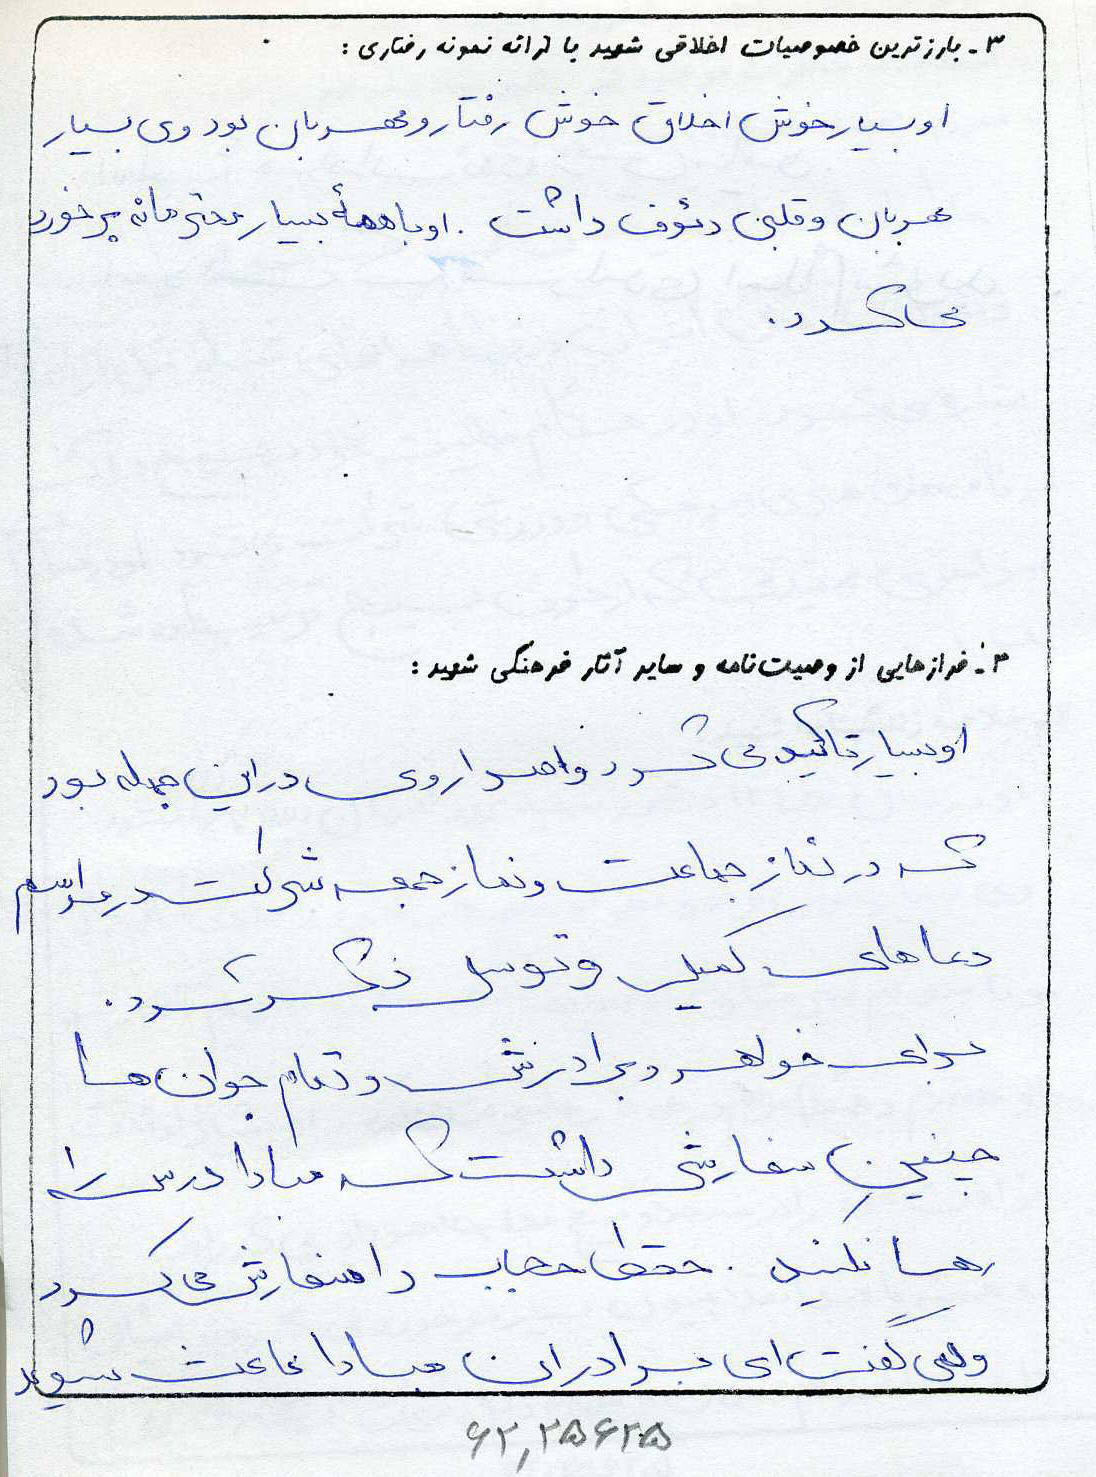 ۳- بارزترین خصوصیات اخلاقی شهید با ارائه نمونه رفتاری :
او بسیار خوش اخلاق خوش رفتار و مهربان بود وی بسیار
مهربان و قلبی رئوف داشت . او با همهٔ بسیار محترمانه برخورد
می کرد .
۳- فرازهایی از وصیت‌نامه و سایر آثار فرهنگی شهید :
او بسیار تاکید می کرد و اصرار وی در این جمله بود
که در نماز جماعت و نماز جمعه شرکت در مراسم
دعاهای کمیل و توسل ذکر شود .
برای خواهر و برادرش و تمام جوان ها
چنین سفارشی داشت که مبادا درس را
رها نکنید . حفظ حجاب را سفارش می کرد
و می گفت ای برادران مبادا باعث شوید
۶۲,۲۵۶۲۵